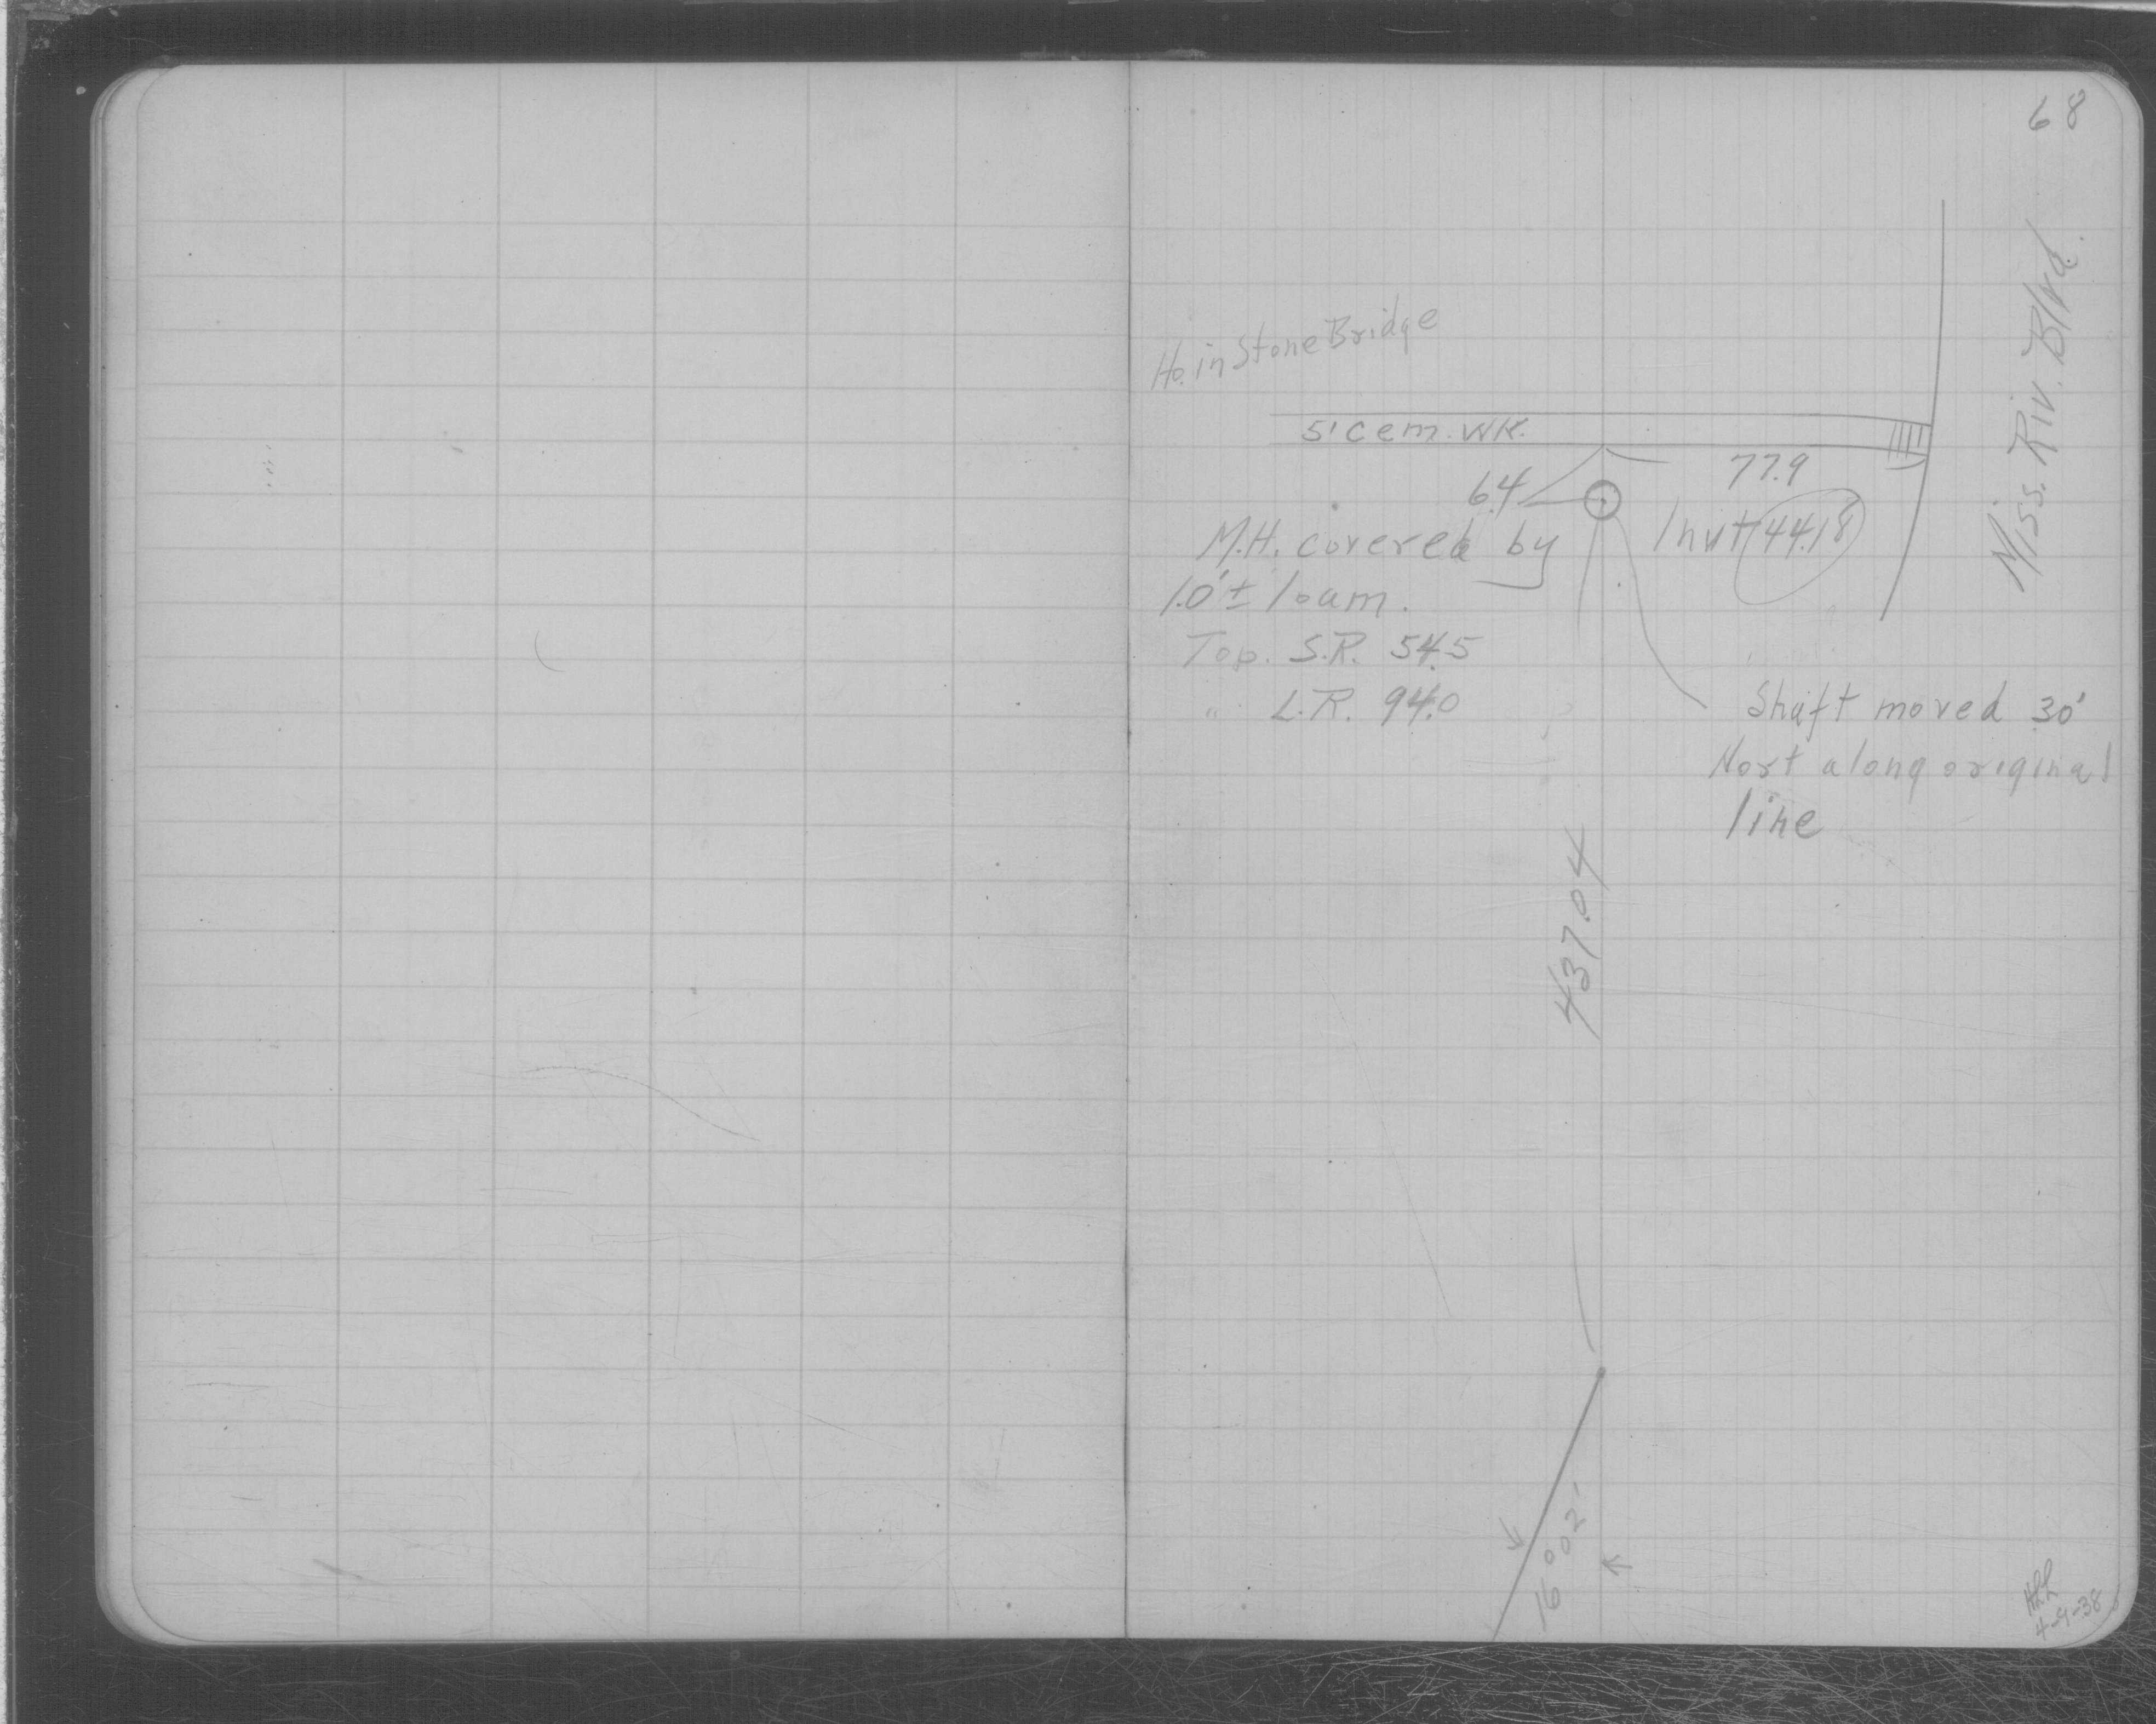 68
Miss. Riv. Blvd.
Ho. in Stone Bridge
5' cem. WK.
77.9
6.4
Invt 44.18
M.H. covered by
1.0'± loam.
Top. S.R. 54.5
" L.R. 94.0
Shaft moved 30'
Nort along original
line
437.04
16°02'
4-9-38